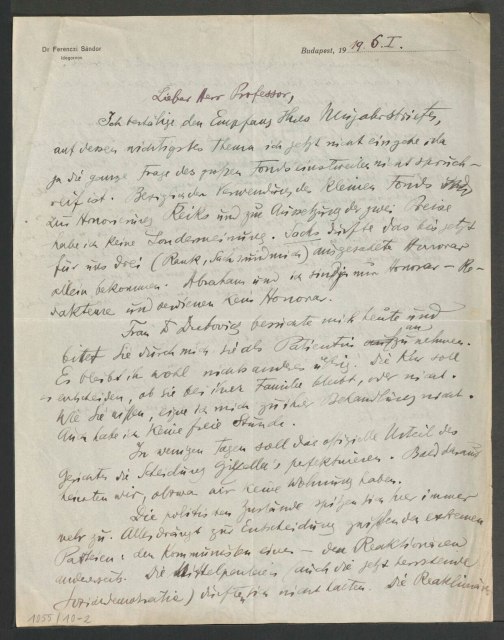 Dr Ferenczi Sándor
idegorvos
Budapest, 19 19. 6. I.
Lieber Herr Professor,
Ich bestätige den Empfang Ihres Neujahrsbriefes,
auf dessen wichtigstes Thema ich jetzt nicht eingehe, da
ja die ganze Frage des großen Fonds einstweilen nicht spruch-
reif ist. Bezüglich der Verwendung des kleinen Fonds
zur Honorierung Reiks und zur Aussetzung der zwei Preise
habe ich keine Sondermeinung. Sachs dürfte das bis jetzt
für uns drei (Rank, Sachs und mich) ausgezahlte Honorar
allein bekommen. Abraham und ich sind ja nur Honorar-Re-
dakteure und verdienen kein Honorar.
Frau D besuchte mich heute und
bittet Sie durch mich sie als Patientin anzunehmen.
Es bleibt ihr wohl nichts anderes übrig. Die Kur soll
entscheiden, ob sie bei ihrer Familie bleibt, oder nicht.
Wie Sie wissen, eigne ich mich zu ihrer Behandlung nicht.
Auch habe ich keine freie Stunde.
In wenigen Tagen soll das offizielle Urteil des
Gerichtes die Scheidung Gisella's perfektionieren. Bald darauf
heiraten wir, obzwar wir keine Wohnung haben.
Die politischen Zustände spitzen sich hier immer
mehr zu. Alles drängt zur Entscheidung zwischen den extremen
Parteien: den Kommunisten einer- den Reaktionären
anderseits. Die Mittelparteien, auch die jetzt herrschende
Sozialdemokratie) dürften sich nicht halten. Die Reaktionäre
1055/10-2